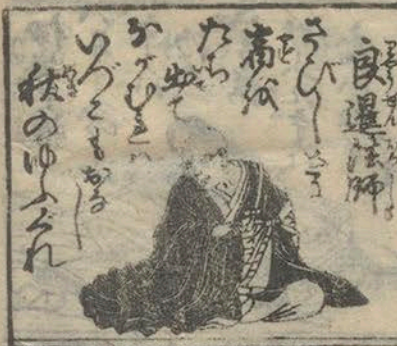 良暹法師
さびしさに
宿を
たち
出て
ながむれば
いづこもおなし
秋のゆふぐれ